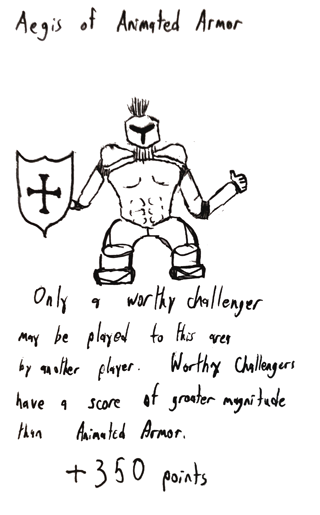 Aegis of Animated Armor
Only a worthy challenger
may be played to this area
by another player. Worthy Challengers
have a score of greater magnitude
than Animated Armor.
+350 points